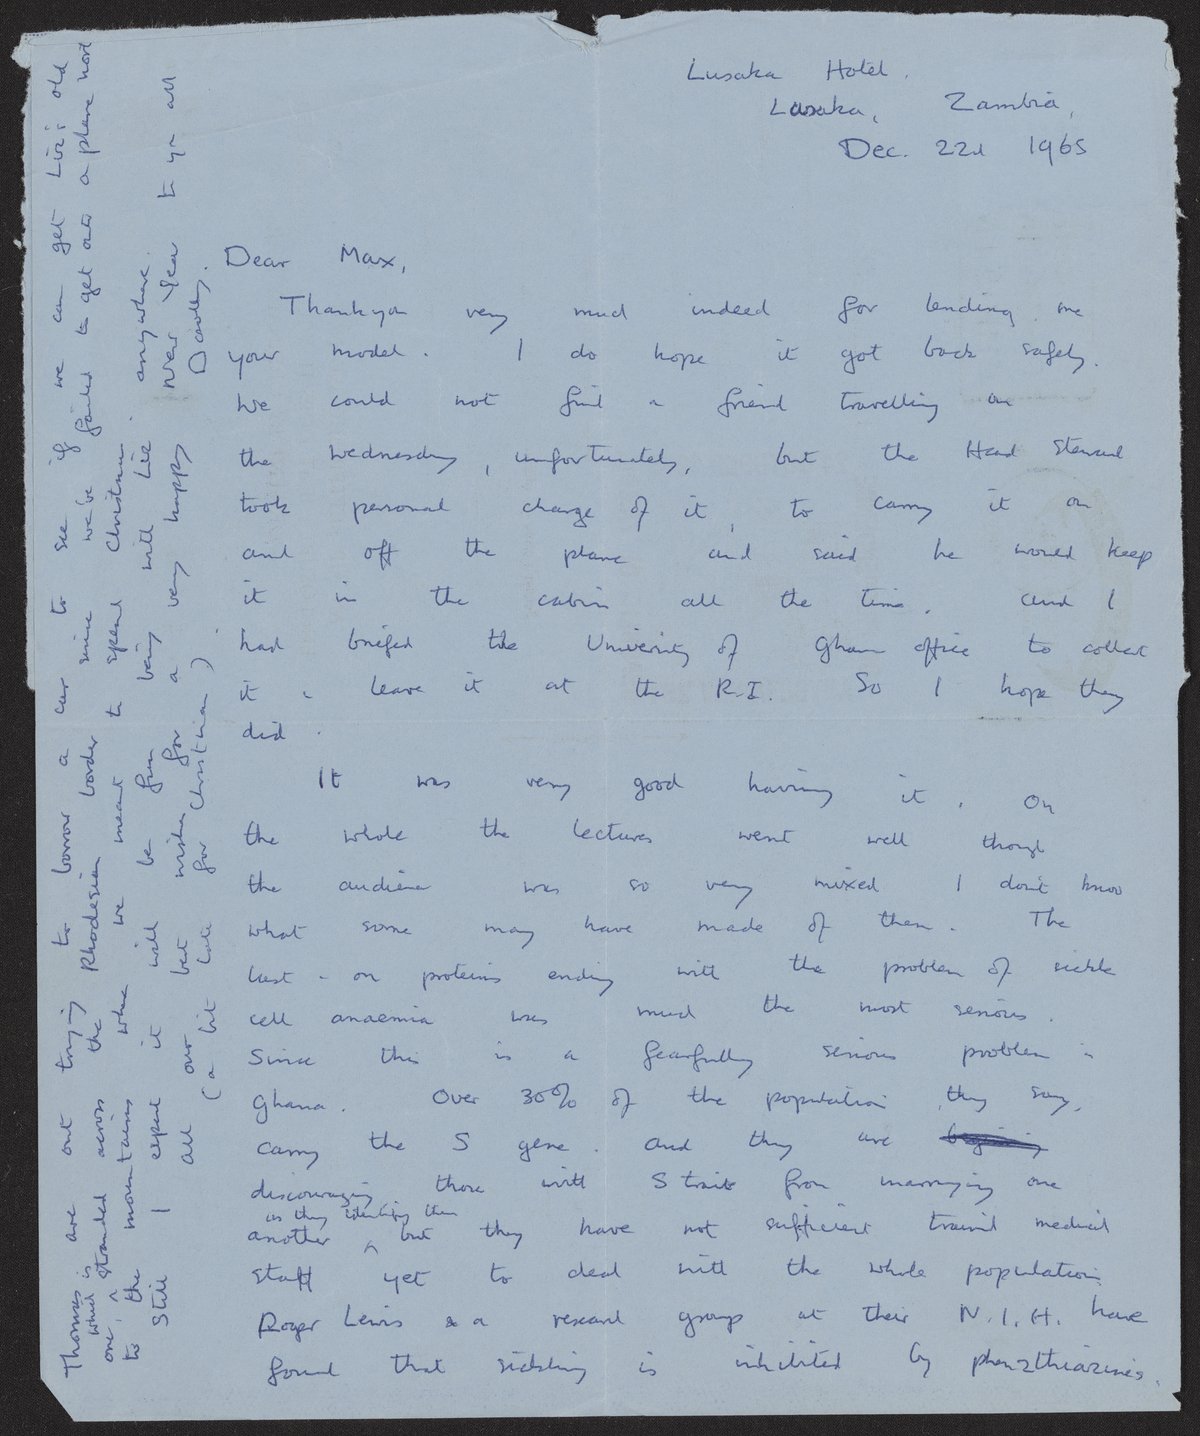 Lusaka Hotel.
Lusaka, Zambia,
Dec. 22d 1965
Dear Max,
Thankyou very much indeed for lending me
your model. I do hope it got back safely.
We could not find a friend travelling on
the wednesday, unfortunately, but the Head Steward
took personal charge of it, to carry it on
and off the plane and said he would keep
it in the cabin all the time. And I
had briefed the University of Ghana office to collect
it & leave it at the R.I. So I hope they
did.
It was very good having it. On
the whole the lectures went well though
the audience was so very mixed I don't know
what some may have made of them. The
last - on proteins ending with the problem of sickle
cell anaemia was much the most serious.
Since this is a fearfully serious problem in
Ghana. Over 30% of the population, they say,
carry the S gene. And they are
discouraging those with S trait from marrying one
as they identify them
another ^ but they have not sufficient trained medical
staff yet to deal with the whole population.
Roger Lewis & a research group at their N.I.H. have
found that sickling is inhibited by phenothiazines.
Thomas is out trying to borrow a car to see if we can get Liz's old
which is
one, ^ stranded across the Rhodesian border since we've failed to get onto a plane north
to the mountains where we meant to spend Christmas.
Still I expect it will be fun being with Liz anywhere.
All our best wishes for a very happy New Year to you all
(a bit late for Christmas)
Dorothy.